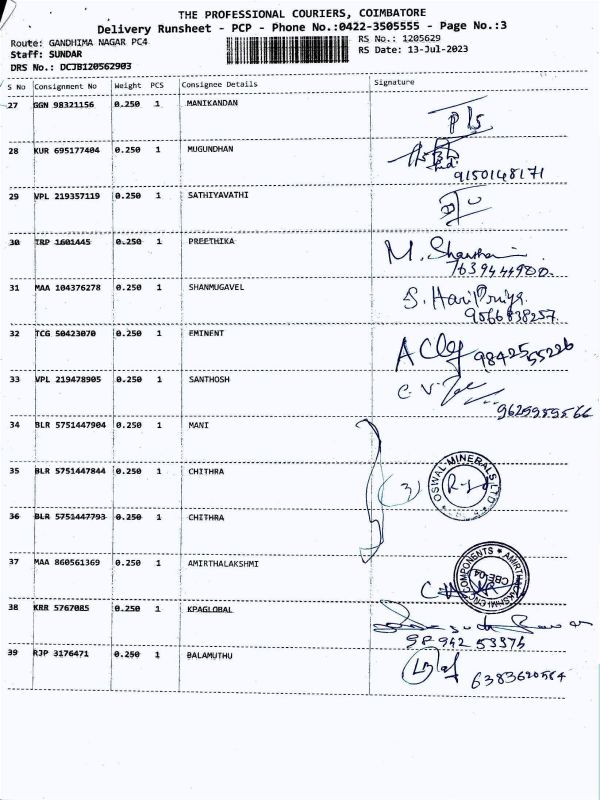 THE PROFESSIONAL COURIERS, COIMBATORE
Delivery Runsheet - PCP - Phone No.:0422-3505555 - Page No.:3
Route: GANDHIMA NAGAR PC4 RS No.: 1205629
Staff: SUNDAR RS Date: 13-Jul-2023
DRS No.: DCJB120562903
S No Consignment No Weight PCS Consignee Details Signature
27 GGN 98321156 0.250 1 MANIKANDAN
28 KUR 695177404 0.250 1 MUGUNDHAN
9150148171
29 VPL 219357119 0.250 1 SATHIYAVATHI
30 TRP 1601445 0.250 1 PREETHIKA M.
31 MAA 104376278 0.250 1 SHANMUGAVEL S. HariPriya
9566838257
32 TCG 50423070 0.250 1 EMINENT
9842555226
33 VPL 219478905 0.250 1 SANTHOSH C. V.
34 BLR 5751447904 0.250 1 MANI
35 BLR 5751447844 0.250 1 CHITHRA (3) OSWAL MINERALS LTD
36 BLR 5751447793 0.250 1 CHITHRA
37 MAA 860561369 0.250 1 AMIRTHALAKSHMI COMPONENTS * CBE-04
38 KRR 5767085 0.250 1 KPAGLOBAL
39 RJP 3176471 0.250 1 BALAMUTHU